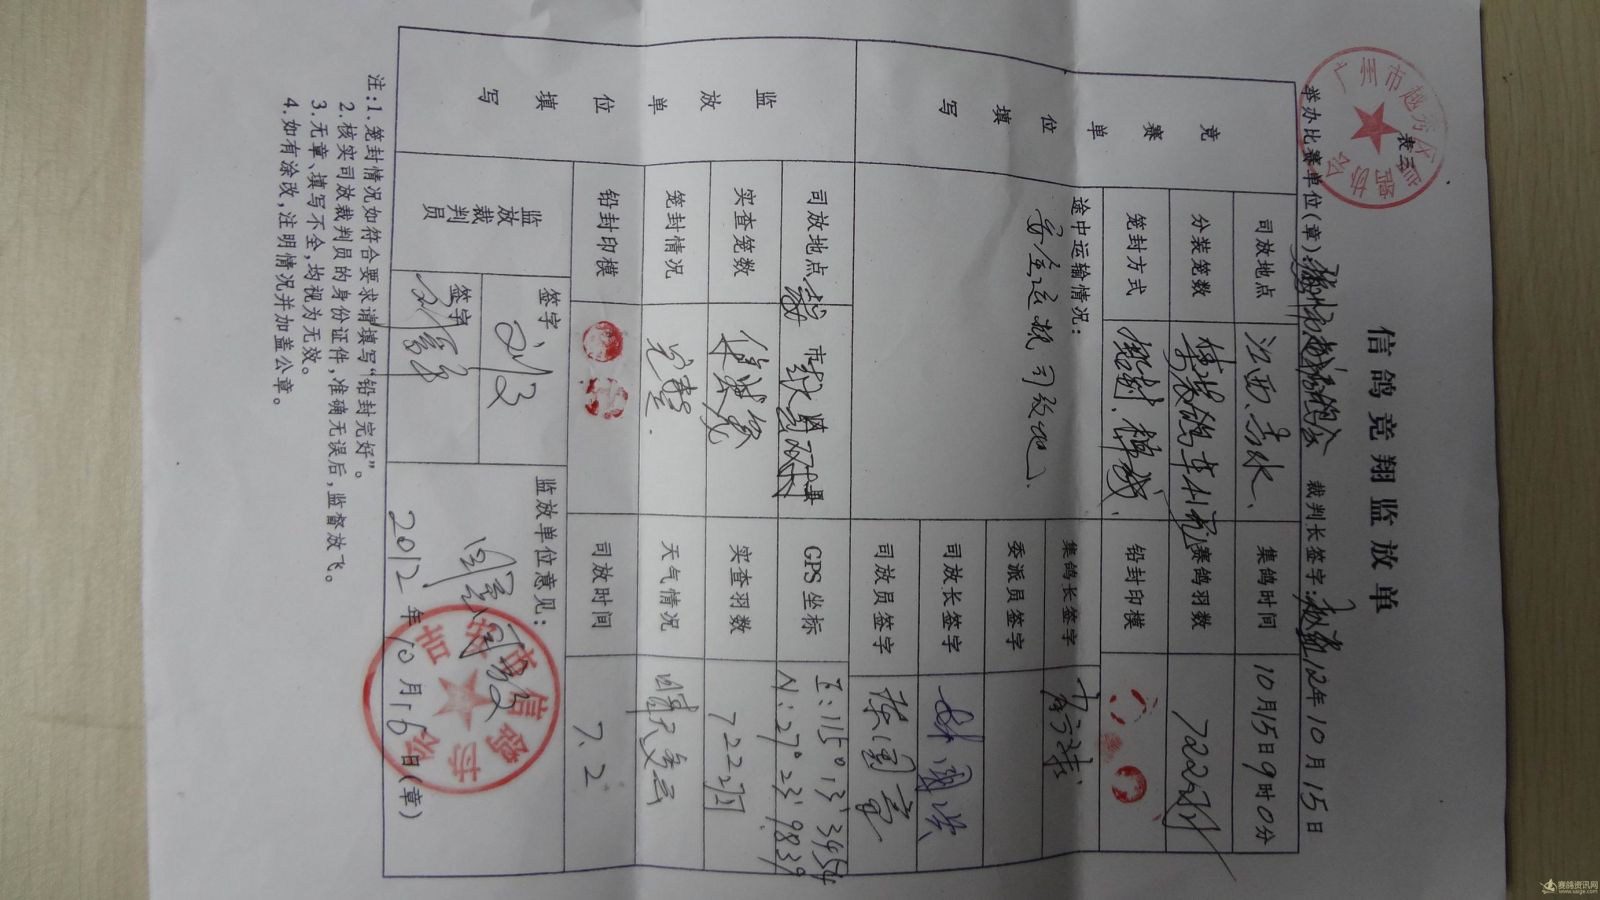 表三
信鸽竞翔监放单
举办比赛单位(章): 裁判长签字: 12年10月15日
竞赛单位填写
司放地点 江西.吉水. 集鸽时间 10月15日9时0分
分装笼数 赛鸽羽数 7222羽
笼封方式 铅封. 铅封印模
途中运输情况: 集鸽长签字
安全运抵司放地. 委派员签字
司放长签字
司放员签字 陈国
监放单位填写
司放地点 市 县 GPS坐标 E:115°13′3454 N:27°23′9839
实查笼数 实查羽数 7222羽
笼封情况 完整. 天气情况 晴天多云
铅封印模 司放时间 7.2
监放裁判员 签字 监放单位意见:
签字 同意司放
2012年10月16日(章)
注:1.笼封情况如符合要求请填写“铅封完好”。
2.核实司放裁判员的身份证件,准确无误后,监督放飞。
3.无章、填写不全,均视为无效。
4.如有涂改,注明情况并加盖公章。
广州市越秀区信鸽协会
吉安市信鸽协会
赛鸽资讯网
www.saige.com